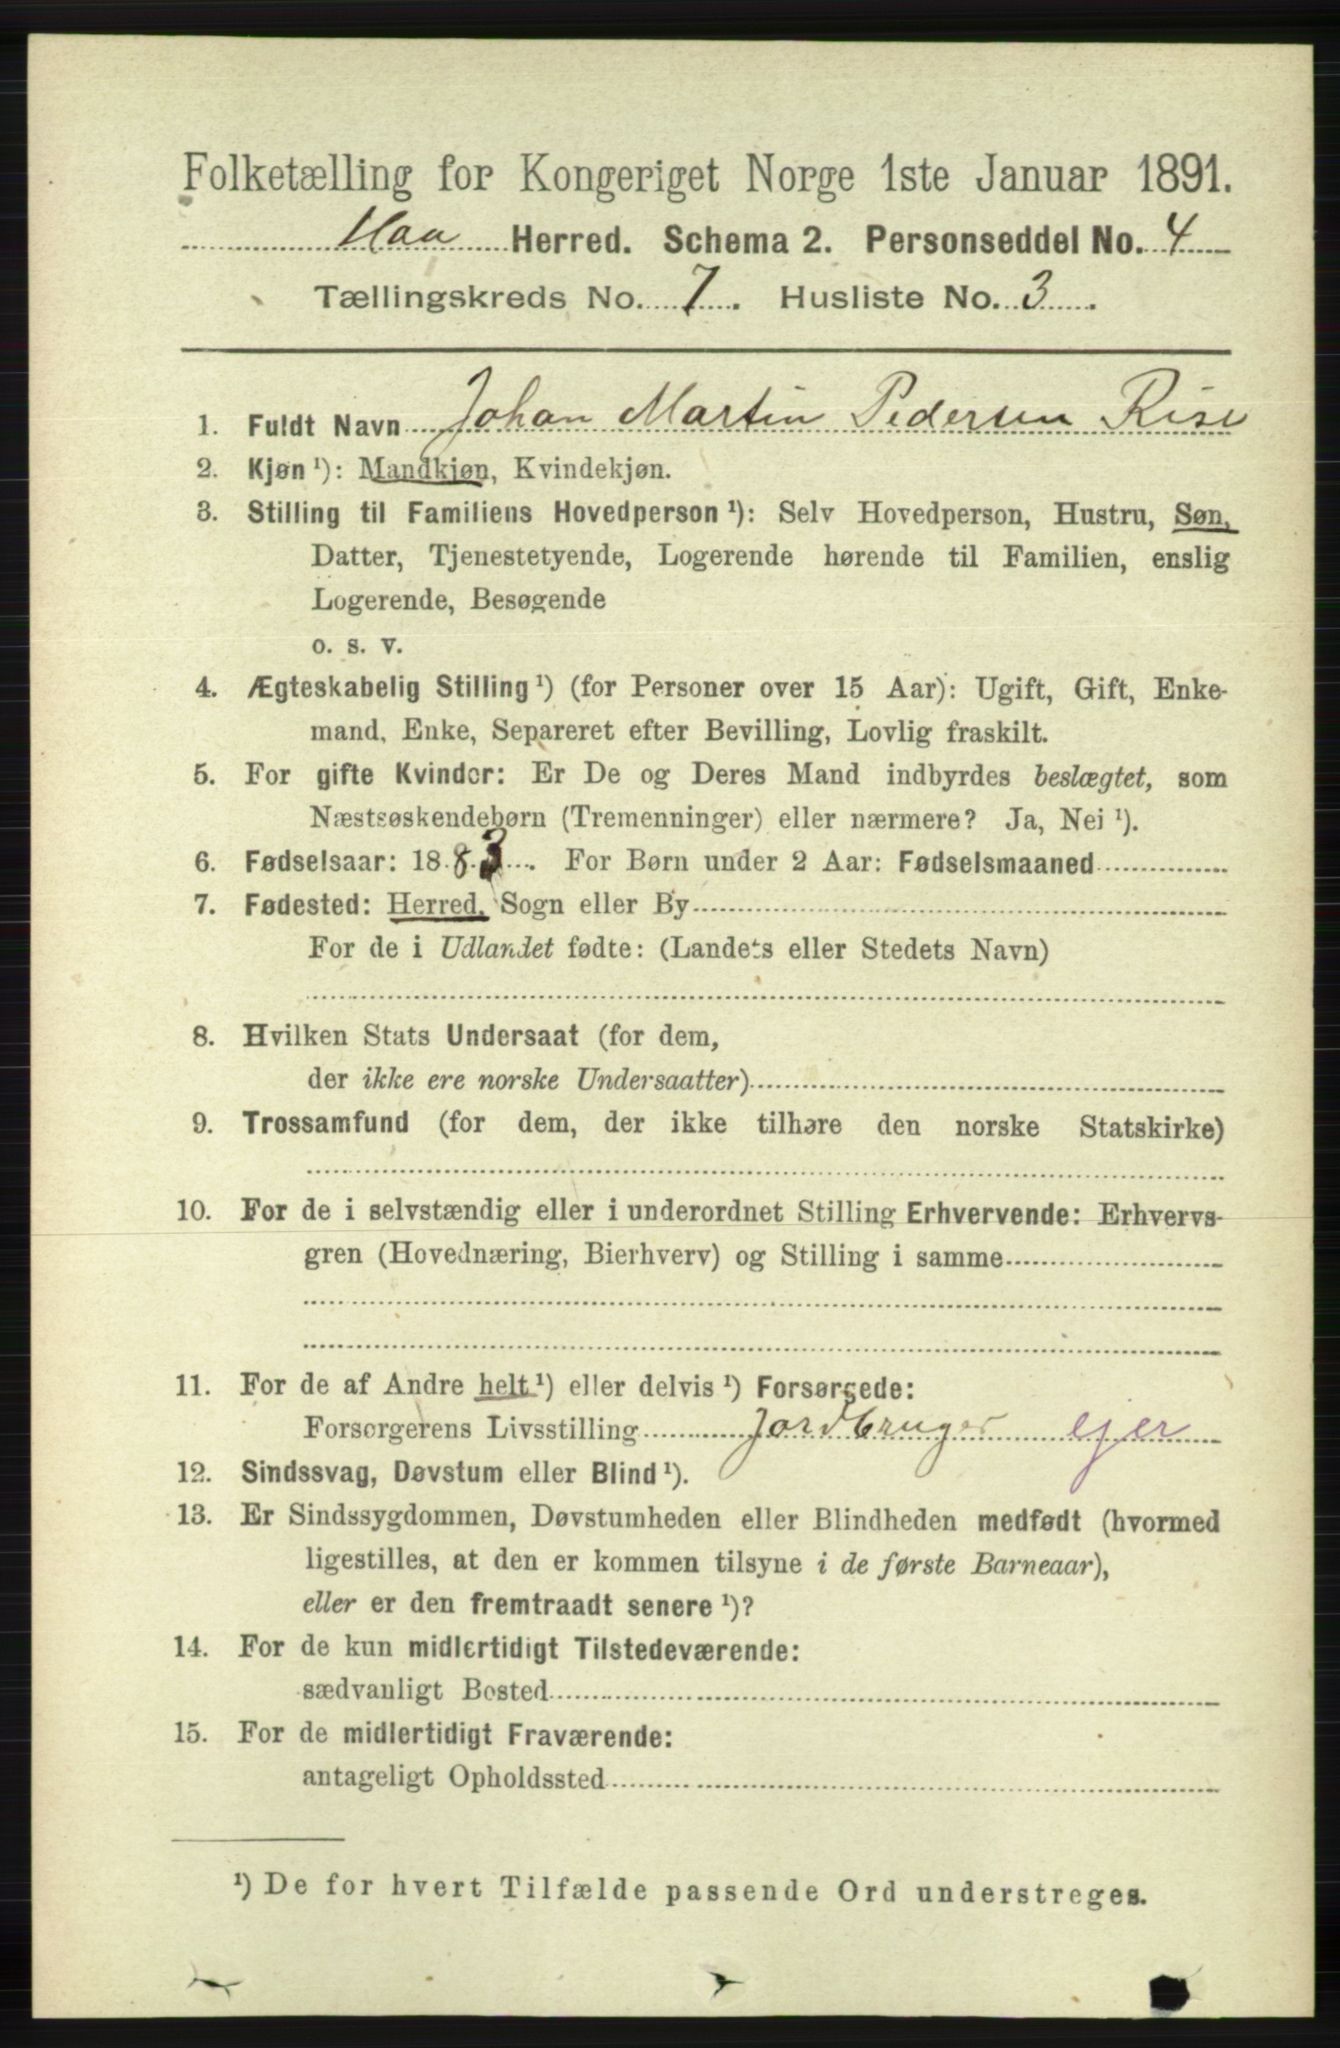 Folketælling for Kongeriget Norge 1ste Januar 1891.
Haa Herred. Schema 2. Personseddel No. 4
Tællingskreds No. 7. Husliste No. 3.
1. Fuldt Navn Johan Martin Pedersen Rise
2. Kjøn ¹): Mandkjøn, Kvindekjøn.
3. Stilling til Familiens Hovedperson ¹): Selv Hovedperson, Hustru, Søn,
Datter, Tjenestetyende, Logerende hørende til Familien, enslig
Logerende, Besøgende
o. s. v.
4. Ægteskabelig Stilling ¹) (for Personer over 15 Aar): Ugift, Gift, Enke-
mand, Enke, Separeret efter Bevilling, Lovlig fraskilt.
5. For gifte Kvinder: Er De og Deres Mand indbyrdes beslægtet, som
Næstsøskendebørn (Tremenninger) eller nærmere? Ja, Nei ¹).
6. Fødselsaar: 1883. For Børn under 2 Aar: Fødselsmaaned
7. Fødested: Herred, Sogn eller By
For de i Udlandet fødte: (Landets eller Stedets Navn)
8. Hvilken Stats Undersaat (for dem,
der ikke ere norske Undersaatter)
9. Trossamfund (for dem, der ikke tilhøre den norske Statskirke)
10. For de i selvstændig eller i underordnet Stilling Erhvervende: Erhvervs-
gren (Hovednæring, Bierhverv) og Stilling i samme
11. For de af Andre helt ¹) eller delvis ¹) Forsørgede:
Forsørgerens Livsstilling Jordbruger ejer
12. Sindssvag, Døvstum eller Blind ¹).
13. Er Sindssygdommen, Døvstumheden eller Blindheden medfødt (hvormed
ligestilles, at den er kommen tilsyne i de første Barneaar),
eller er den fremtraadt senere ¹)?
14. For de kun midlertidigt Tilstedeværende:
sædvanligt Bosted
15. For de midlertidigt Fraværende:
antageligt Opholdssted
¹) De for hvert Tilfælde passende Ord understreges.